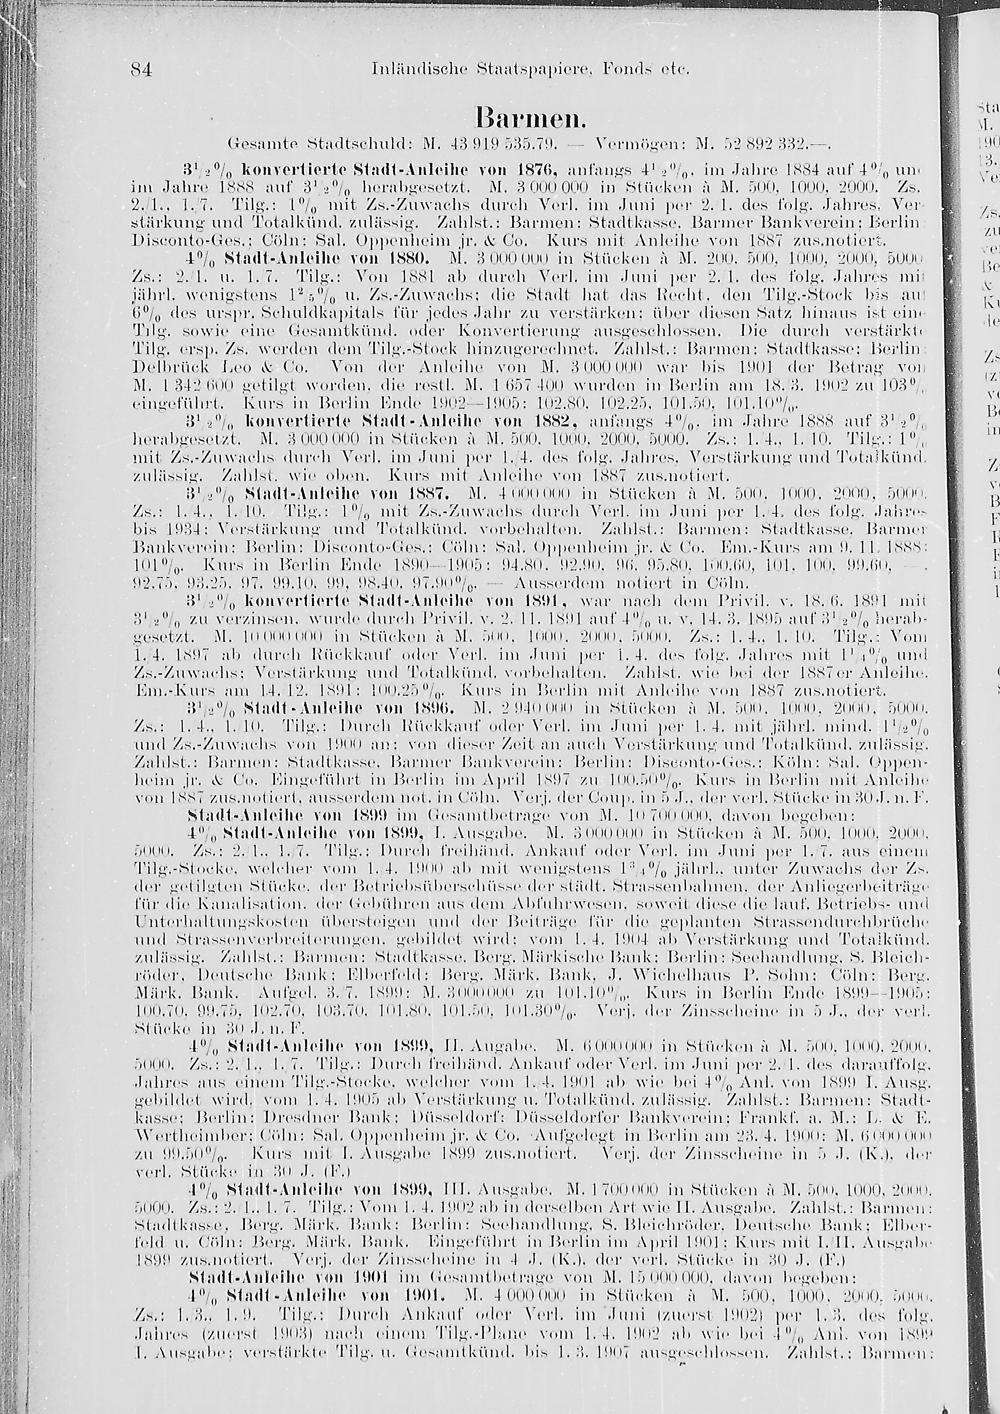 84 Inländische Staatspapiere, Fonds etc.
Barmen.
Gesamte Stadtschuld: M. 43 919 535.79. — Vermögen: M. 52 892 332.—.
3½% konvertierte Stadt-Anleihe von 1876, anfangs 4½%, im Jahre 1884 auf 4% un
im Jahre 1888 auf 3½% herabgesetzt. M. 3 000 000 in Stücken à M. 500, 1000, 2000. Zs.
2./1., 1./7. Tilg.: 1% mit Zs.-Zuwachs durch Verl. im Juni per 2. 1. des folg. Jahres, Ver
stärkung und Totalkünd. zulässig. Zahlst.: Barmen: Stadtkasse, Barmer Bankverein; Berlin
Disconto-Ges.; Cöln: Sal. Oppenheim jr. & Co. Kurs mit Anleihe von 1887 zus.notiert.
4% Stadt-Anleihe von 1880. M. 3 000 000 in Stücken à M. 200, 500, 1000, 2000, 5000
Zs.: 2./1. u. 1./7. Tilg.: Von 1881 ab durch Verl. im Juni per 2./1. des folg. Jahres mi
jährl. wenigstens 1⅖% u. Zs.-Zuwachs; die Stadt hat das Recht, den Tilg.-Stock bis au
6% des urspr. Schuldkapitals für jedes Jahr zu verstärken; über diesen Satz hinaus ist eine
Tilg. sowie eine Gesamtkünd. oder Konvertierung ausgeschlossen. Die durch verstärkte
Tilg. ersp. Zs. werden dem Tilg.-Stock hinzugerechnet. Zahlst.: Barmen: Stadtkasse; Berlin:
Delbrück Leo & Co. Von der Anleihe von M. 3 000 000 war bis 1901 der Betrag von
M. 1 342 600 getilgt worden, die restl. M. 1 657 400 wurden in Berlin am 18./3. 1902 zu 103%
eingeführt. Kurs in Berlin Ende 1902—1905: 102.80, 102.25, 101.50, 101.10%.
3½% konvertierte Stadt-Anleihe von 1882, anfangs 4%, im Jahre 1888 auf 3½%
herabgesetzt. M. 3 000 000 in Stücken à M. 500, 1000, 2000, 5000. Zs.: 1./4., 1./10. Tilg.: 1%
mit Zs.-Zuwachs durch Verl. im Juni per 1./4. des folg. Jahres, Verstärkung und Totalkünd.
zulässig. Zahlst. wie oben. Kurs mit Anleihe von 1887 zus.notiert.
3½% Stadt-Anleihe von 1887. M. 4 000 000 in Stücken à M. 500, 1000, 2000, 5000.
Zs.: 1./4., 1./10. Tilg.: 1% mit Zs.-Zuwachs durch Verl. im Juni per 1./4. des folg. Jahres
bis 1934; Verstärkung und Totalkünd. vorbehalten. Zahlst.: Barmen: Stadtkasse, Barmer
Bankverein; Berlin: Disconto-Ges.; Cöln: Sal. Oppenheim jr. & Co. Em.-Kurs am 9./11. 1888:
101%. Kurs in Berlin Ende 1890—1905: 94.80, 92.90, 96, 95.80, 100.60, 101, 100, 99.60, —,
92.75, 93.25, 97, 99.10, 99, 98.40, 97.90%. — Ausserdem notiert in Cöln.
3½% konvertierte Stadt-Anleihe von 1891, war nach dem Privil. v. 18./6. 1891 mit
3½% zu verzinsen, wurde durch Privil. v. 2./11. 1891 auf 4% u. v. 14./3. 1895 auf 3½% herab-
gesetzt. M. 10 000 000 in Stücken à M. 500, 1000, 2000, 5000. Zs.: 1./4., 1./10. Tilg.: Vom
1./4. 1897 ab durch Rückkauf oder Verl. im Juni per 1./4. des folg. Jahres mit 1¼% und
Zs.-Zuwachs; Verstärkung und Totalkünd. vorbehalten. Zahlst. wie bei der 1887er Anleihe.
Em.-Kurs am 14./12. 1891: 100.25%. Kurs in Berlin mit Anleihe von 1887 zus.notiert.
3½% Stadt-Anleihe von 1896. M. 2 940 000 in Stücken à M. 500, 1000, 2000, 5000.
Zs.: 1./4., 1./10. Tilg.: Durch Rückkauf oder Verl. im Juni per 1./4. mit jährl. mind. 1½%
und Zs.-Zuwachs von 1900 an; von dieser Zeit an auch Verstärkung und Totalkünd. zulässig.
Zahlst.: Barmen: Stadtkasse, Barmer Bankverein; Berlin: Disconto-Ges.; Köln: Sal. Oppen-
heim jr. & Co. Eingeführt in Berlin im April 1897 zu 100.50%. Kurs in Berlin mit Anleihe
von 1887 zus.notiert, ausserdem not. in Cöln. Verj. der Coup. in 5 J., der verl. Stücke in 30 J. n. F.
Stadt-Anleihe von 1899 im Gesamtbetrage von M. 10 700 000, davon begeben:
4% Stadt-Anleihe von 1899, I. Ausgabe. M. 3 000 000 in Stücken à M. 500, 1000, 2000,
5000. Zs.: 2./1., 1./7. Tilg.: Durch freihänd. Ankauf oder Verl. im Juni per 1./7. aus einem
Tilg.-Stocke, welcher vom 1./4. 1900 ab mit wenigstens 1¾% jährl., unter Zuwachs der Zs.
der getilgten Stücke, der Betriebsüberschüsse der städt. Strassenbahnen, der Anliegerbeiträge
für die Kanalisation, der Gebühren aus dem Abfuhrwesen, soweit diese die lauf. Betriebs- und
Unterhaltungskosten übersteigen und der Beiträge für die geplanten Strassendurchbrüche
und Strassenverbreiterungen, gebildet wird; vom 1./4. 1904 ab Verstärkung und Totalkünd.
zulässig. Zahlst.: Barmen: Stadtkasse, Berg. Märkische Bank; Berlin: Seehandlung, S. Bleich-
röder, Deutsche Bank; Elberfeld: Berg. Märk. Bank, J. Wichelhaus P. Sohn; Cöln: Berg.
Märk. Bank. Aufgel. 3./7. 1899: M. 3 000 000 zu 101.10%. Kurs in Berlin Ende 1899—1905:
100.70, 99.75, 102.70, 103.70, 101.80, 101.50, 101.30%. Verj. der Zinsscheine in 5 J., der verl.
Stücke in 30 J. n. F.
4% Stadt-Anleihe von 1899, II. Augabe. M. 6 000 000 in Stücken à M. 500, 1000, 2000,
5000. Zs.: 2./1., 1./7. Tilg.: Durch freihänd. Ankauf oder Verl. im Juni per 2./1. des darauffolg.
Jahres aus einem Tilg.-Stocke, welcher vom 1./4. 1901 ab wie bei 4% Anl. von 1899 I. Ausg.
gebildet wird, vom 1./4. 1905 ab Verstärkung u. Totalkünd. zulässig. Zahlst.: Barmen: Stadt-
kasse; Berlin: Dresdner Bank; Düsseldorf: Düsseldorfer Bankverein; Frankf. a. M.: L. & E.
Wertheimber; Cöln: Sal. Oppenheim jr. & Co. Aufgelegt in Berlin am 23./4. 1900: M. 6 000 000
zu 99.50%. Kurs mit I. Ausgabe 1899 zus.notiert. Verj. der Zinsscheine in 5 J. (K.), der
verl. Stücke in 30 J. (F.)
4% Stadt-Anleihe von 1899, III. Ausgabe. M. 1 700 000 in Stücken à M. 500, 1000, 2000,
5000. Zs.: 2./1., 1./7. Tilg.: Vom 1./4. 1902 ab in derselben Art wie II. Ausgabe. Zahlst.: Barmen:
Stadtkasse, Berg. Märk. Bank; Berlin: Seehandlung, S. Bleichröder, Deutsche Bank; Elber-
feld u. Cöln: Berg. Märk. Bank. Eingeführt in Berlin im April 1901; Kurs mit I./II. Ausgabe
1899 zus.notiert. Verj. der Zinsscheine in 4 J. (K.), der verl. Stücke in 30 J. (F.)
Stadt-Anleihe von 1901 im Gesamtbetrage von M. 15 000 000, davon begeben:
4% Stadt-Anleihe von 1901. M. 4 000 000 in Stücken à M. 500, 1000, 2000, 5000.
Zs.: 1./3., 1./9. Tilg.: Durch Ankauf oder Verl. im Juni (zuerst 1902) per 1./3. des folg.
Jahres (zuerst 1903) nach einem Tilg.-Plane vom 1./4. 1902 ab wie bei 4% Anl. von 1899
I. Ausgabe; verstärkte Tilg. u. Gesamtkünd. bis 1./3. 1907 ausgeschlossen. Zahlst.: Barmen: